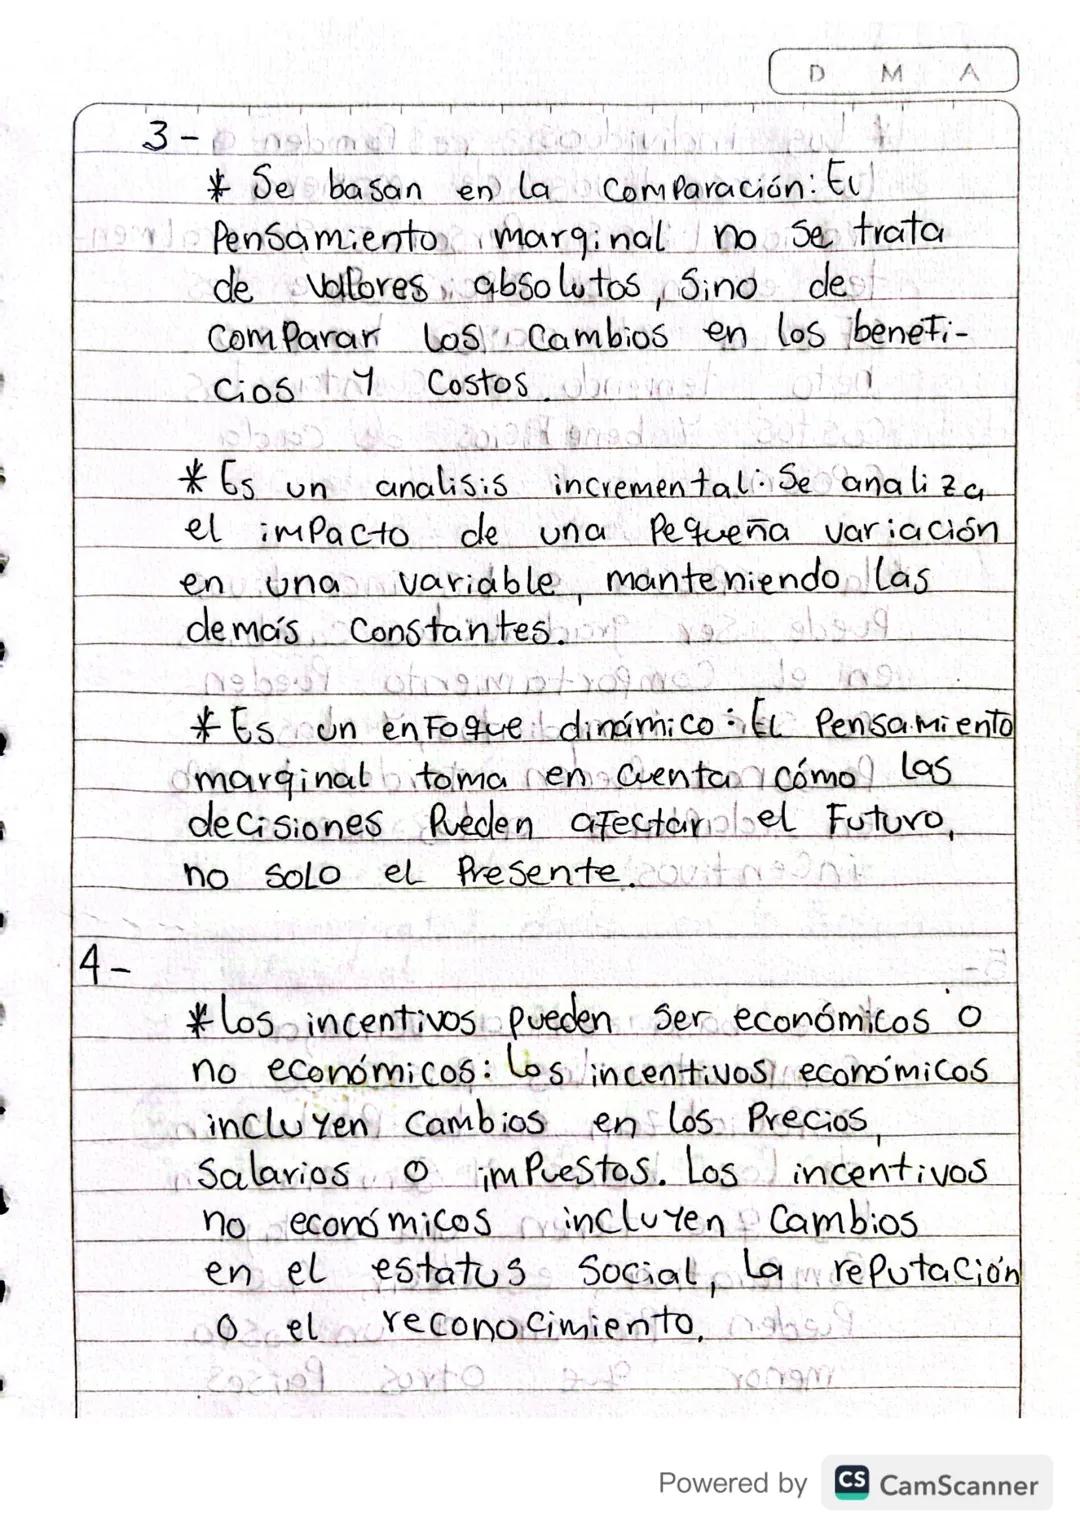 D M A
3-
* Se basan en la comparación: El
Pensamiento marginal no se trata
de valores absolutos, sino de
comparar los cambios en los benefi-
cios y costos.
* Es un analisis incremental: Se analiza
el impacto de una pequeña variación
en una variable, manteniendo las
demás constantes.
* Es un enfoque dinámico: El Pensamiento
marginal toma en cuenta cómo las
decisiones pueden afectar el futuro,
no solo el presente.
4-
* Los incentivos pueden ser económicos o
no económicos: los incentivos económicos
incluyen cambios en los precios,
salarios o impuestos. Los incentivos
no económicos incluyen cambios
en el estatus social, la reputación
o el reconocimiento.
Powered by CS CamScanner